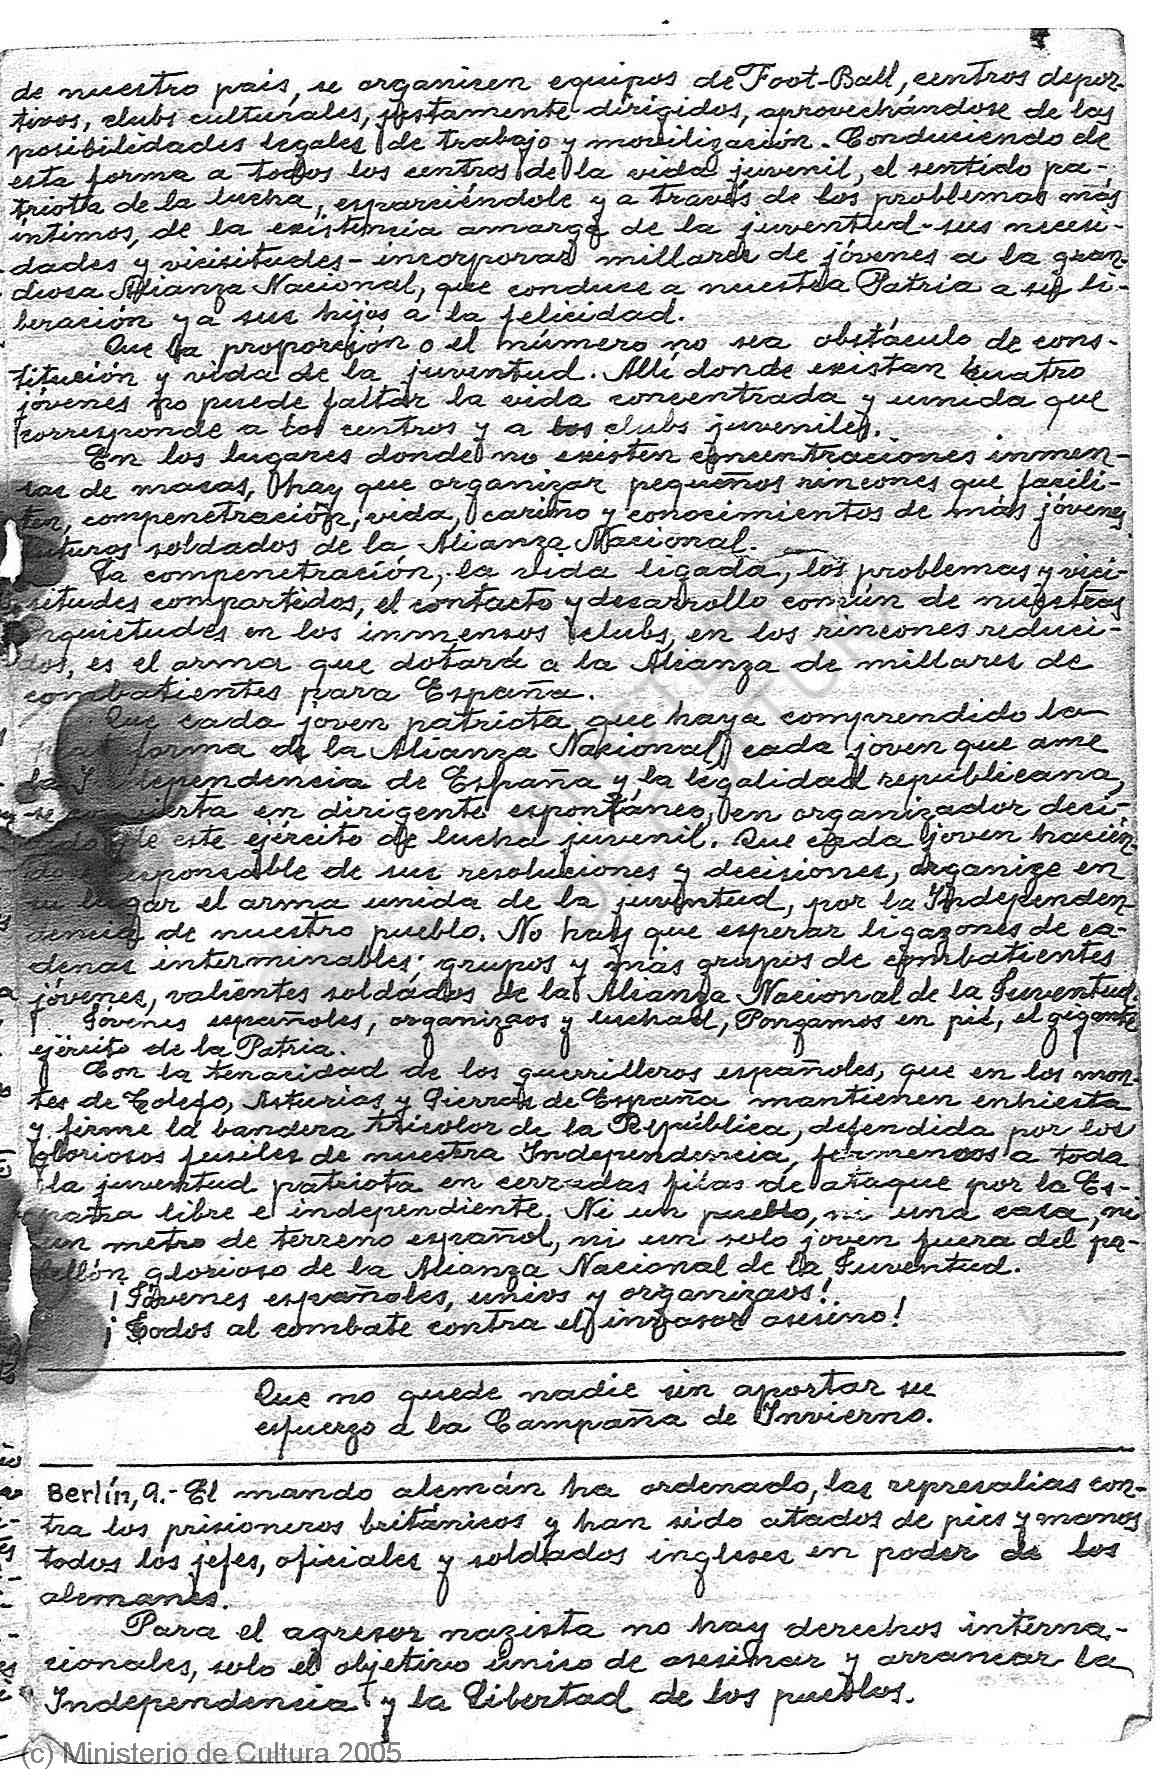 de nuestro pais, se organicen equipos de Foot-Ball, centros depor-
tivos, clubs culturales, justamente dirigidos, aprovechándose de las
posibilidades legales de trabajo y movilización. Conduciendo de
esta forma a todos los centros de la vida juvenil, el sentido pa-
triota de la lucha, esparciéndole y a través de los problemas más
íntimos, de la existencia amarga de la juventud - sus necesi-
dades y vicisitudes - incorporar millares de jóvenes a la gran-
diosa Alianza Nacional, que conduce a nuestra Patria a su li-
beración y a sus hijos a la felicidad.
Que la proporción o el número no sea obstáculo de cons-
titución y vida de la juventud. Allí donde existan cuatro
jóvenes no puede faltar la vida concentrada y unida que
corresponde a los centros y a los clubs juveniles.
En los lugares donde no existen concentraciones inmen-
sas de masas, hay que organizar pequeños rincones que facili-
ten, compenetración, vida, cariño y conocimientos de más jóvenes
futuros soldados de la Alianza Nacional.
La compenetración, la vida ligada, los problemas y vici-
situdes compartidos, el contacto y desarrollo común de nuestras
inquietudes en los inmensos clubs, en los rincones reduci-
dos, es el arma que dotará a la Alianza de millares de
combatientes para España.
Que cada joven patriota que haya comprendido la
plataforma de la Alianza Nacional, cada joven que ame
la Independencia de España y la legalidad republicana,
se convierta en dirigente espontáneo, en organizador deci-
dido de este ejército de lucha juvenil. Que cada joven hacién-
dose responsable de sus resoluciones y decisiones, organize en
su lugar el arma unida de la juventud, por la Independen-
dencia de nuestro pueblo. No hay que esperar ligazones de ca-
denas interminables; grupos y más grupos de combatientes
jóvenes, valientes soldados de la Alianza Nacional de la Juventud.
Jóvenes españoles, organizaos y luchad, Pongamos en pie, el gigante
ejército de la Patria.
Con la tenacidad de los guerrilleros españoles, que en los mon-
tes de Toledo, Asturias y Sierras de España mantienen enhiesta
y firme la bandera tricolor de la República, defendida por los
gloriosos fusiles de nuestra Independencia, formemos a toda
la juventud patriota en cerradas filas de ataque por la Es-
paña libre e independiente. Ni un pueblo, ni una casa, ni
un metro de terreno español, ni un solo joven fuera del pa-
bellón glorioso de la Alianza Nacional de la Juventud.
¡Jóvenes españoles, uníos y organizaos!
¡Todos al combate contra el invasor asesino!
Que no quede nadie sin aportar su
esfuerzo a la Campaña de Invierno.
Berlín, 9.- El mando alemán ha ordenado, las represalias con-
tra los prisioneros británicos y han sido atados de pies y manos
todos los jefes, oficiales y soldados ingleses en poder de los
alemanes.
Para el agresor nazista no hay derechos interna-
cionales, solo el objetivo único de asesinar y arrancar la
Independencia y la Libertad de los pueblos.
(c) Ministerio de Cultura 2005